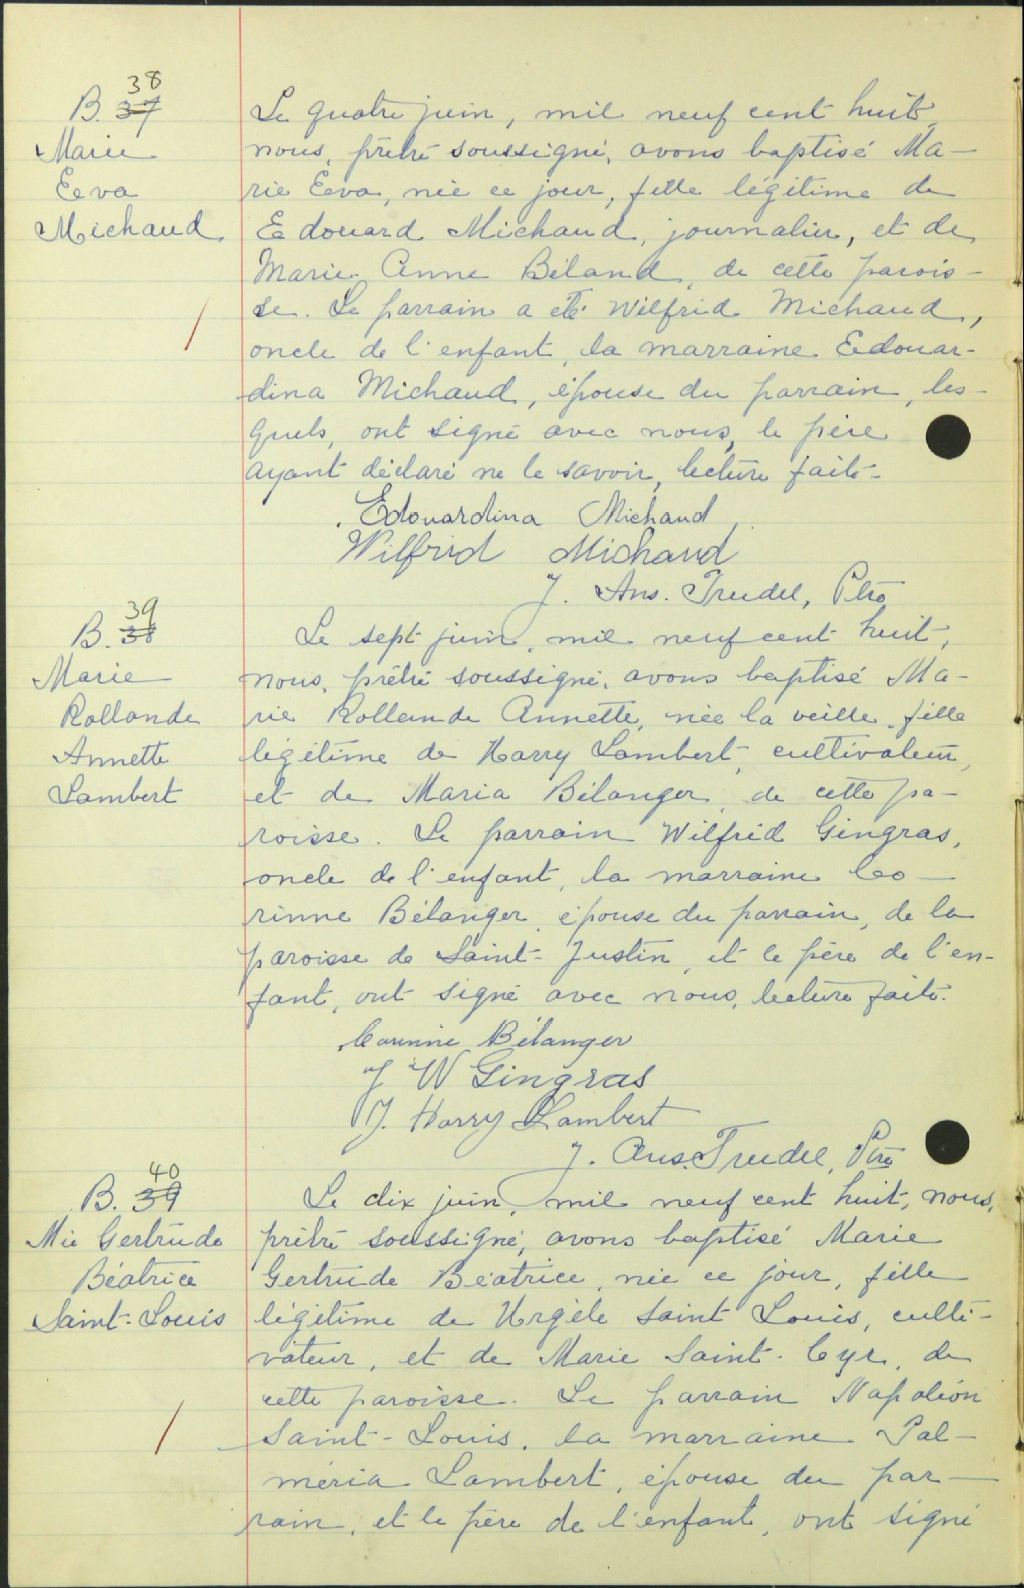 38
B. 37
Marie
Eeva
Michaud
Le quatre juin, mil neuf cent huit,
nous, prêtre soussigné, avons baptisé Ma-
rie Eeva, née ce jour, fille légitime de
Edouard Michaud, journalier, et de
Marie Anne Béland, de cette parois-
se. Le parrain a été Wilfrid Michaud,
oncle de l'enfant, la marraine Edouar-
dina Michaud, épouse du parrain, les-
quels, ont signé avec nous, le père
ayant déclaré ne le savoir, lecture faite-
Edouardina Michaud
Wilfrid Michaud
J. Ans. Trudel, Ptre
39
B. 38
Marie
Rollande
Annette
Lambert
Le sept juin, mil neuf cent huit,
nous, prêtre soussigné, avons baptisé Ma-
rie Rollande Annette, née la veille, fille
légitime de Harry Lambert, cultivateur,
et de Maria Bélanger, de cette pa-
roisse. Le parrain Wilfrid Gingras,
oncle de l'enfant, la marraine Co-
rinne Bélanger, épouse du parrain, de la
paroisse de Saint-Justin, et le père de l'en-
fant, ont signé avec nous, lecture faite.
Corinne Bélanger
J W Gingras
J. Harry Lambert
J. Ans. Trudel, Ptre
40
B. 39
Mie Gertrude
Béatrice
Saint-Louis
Le dix juin, mil neuf cent huit, nous,
prêtre soussigné, avons baptisé Marie
Gertrude Béatrice, née ce jour, fille
légitime de Urgèle Saint Louis, culti-
vateur, et de Marie Saint-Cyr, de
cette paroisse. Le parrain Napoléon
Saint-Louis, la marraine Pal-
méria Lambert, épouse du par-
rain, et le père de l'enfant, ont signé